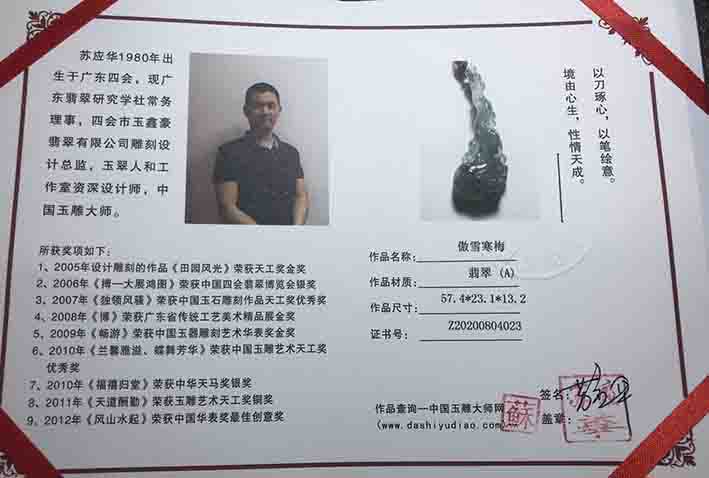 苏应华1980年出
生于广东四会，现广
东翡翠研究学社常务
理事，四会市玉鑫豪
翡翠有限公司雕刻设
计总监，玉翠人和工
作室资深设计师，中
国玉雕大师。
以刀琢心，以笔绘意。
境由心生，性情天成。
所获奖项如下：
1、2005年设计雕刻的作品《田园风光》荣获天工奖金奖
2、2006年《搏一大展鸿图》荣获中国四会翡翠博览会银奖
3、2007年《独领风骚》荣获中国玉石雕刻作品天工奖优秀奖
4、2008年《博》荣获广东省传统工艺美术精品展金奖
5、2009年《畅游》荣获中国玉器雕刻艺术华表奖金奖
6、2010年《兰馨雅溢、蝶舞芳华》荣获中国玉雕艺术天工奖
优秀奖
7、2010年《福禧归堂》荣获中华天马奖银奖
8、2011年《天道酬勤》荣获玉雕艺术天工奖铜奖
9、2012年《风山水起》荣获中国华表奖最佳创意奖
作品名称：傲雪寒梅
作品材质：翡翠（A）
作品尺寸：57.4*23.1*13.2
证书号：Z20200804023
作品查询一中国玉雕大师网
(www.dashiyudiao.com)
蘇
签名：
盖章：